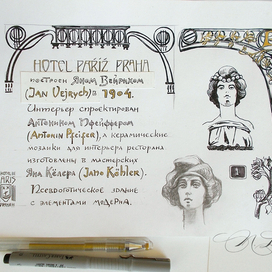 HOTEL PAŘÍŽ PRAHA
построен Яном Вейрихом
(Jan Vejrych) в 1904.
Интерьер спроектирован
Антонином Пфейффером
(Antonin Pfeifer), а керамические
мозаики для интерьера ресторана
изготовлены в мастерских
Яна Кёлера (Jano Köhler).
Псевдоготическое здание
с элементами модерна.
PAŘÍŽ
1